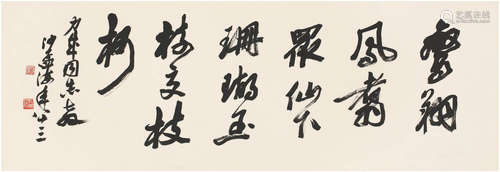 鸾翔
凤翥
众仙下
珊瑚玉
树交枝
柯
同志教
沙孟海年八十三